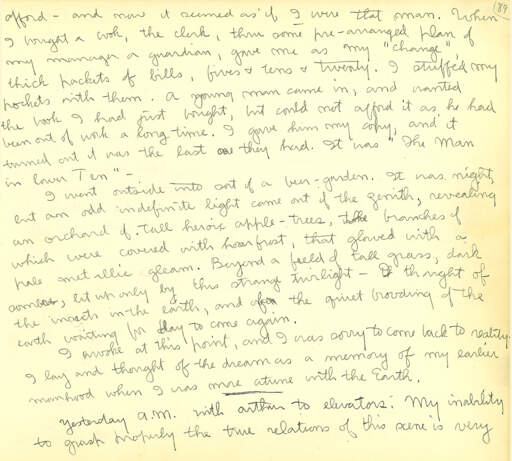 189
afford – and now it seemed as if I were that man. When
I bought a book, the clerk, thru some pre-arranged plan of
my manager a guardian, gave me as my "change"
thick packets of bills, fives & tens & twenty. I stuffed my
pockets with them. A young man came in, and wanted
the book I had just bought, but could not afford it as he had
been out of work a long time. I gave him my copy, and it
turned out it was the last one they had. It was "The Man
in lower Ten" –
I went outside into sort of a beer-garden. It was night,
but an odd indefinite light came out of the zenith, revealing
an orchard of tall heroic apple-trees, the branches of
which were covered with hoar frost, that glowed with a
pale metallic gleam. Beyond a field of tall grass, dark
somber, lit up only by this strange twilight – I thought of
the insects in the earth, and of the quiet brooding of the
earth waiting for day to come again.
I awoke at this point, and I was sorry to come back to reality.
I lay and thought of the dream as a memory of my earlier
manhood when I was more atune with the Earth.
Yesterday a.m. with Arthur to elevators. My inability
to grasp properly the true relations of this scene is very